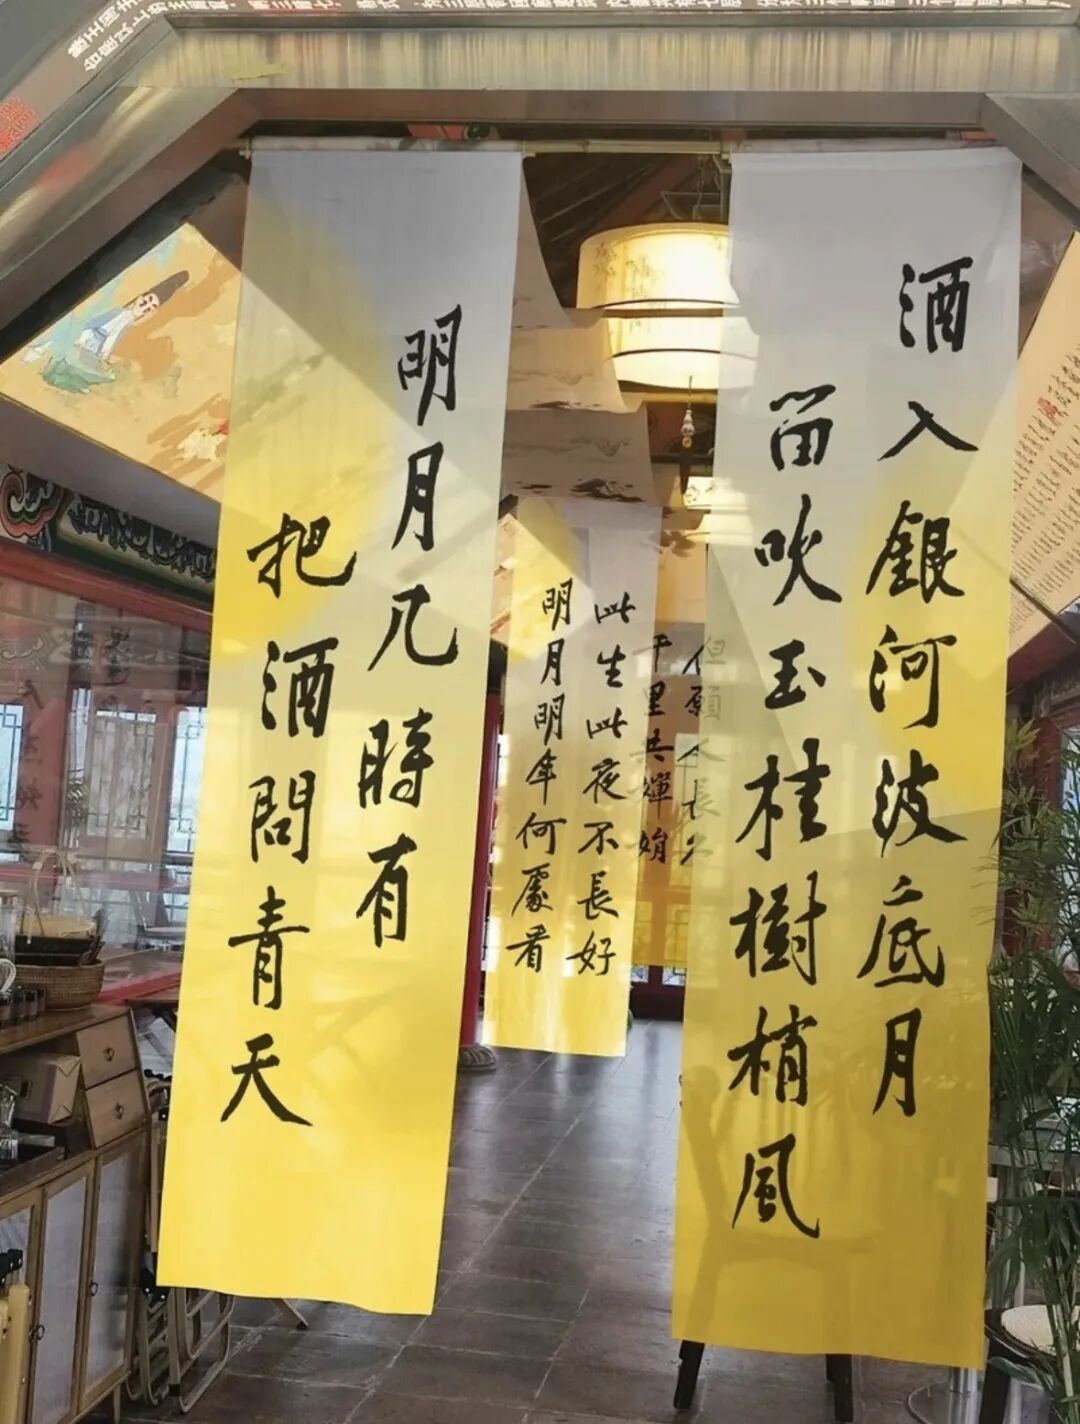 酒入銀河波底月
笛吹玉桂樹梢風
明月几時有
把酒問青天
但願人長久
千里共嬋娟
此生此夜不長好
明月明年何處看